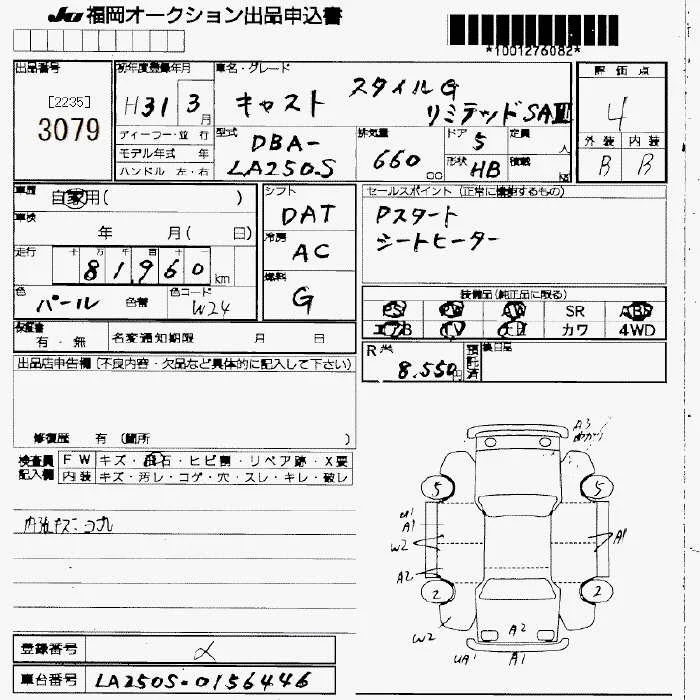 JU 福岡オークション出品申込書
*1001276082*
出品番号
[2235]
3079
初年度登録年月
H31 3月
ディーラー・並行
モデル年式 年
ハンドル 左・右
車名・グレード
キャスト スタイルG
リミテッドSAIII
型式
DBA-
LA250S
排気量
660 cc
ドア 5
形状 HB
定員 人
積載 kg
評価点
4
外装 内装
B B
車歴
自家用( )
車検
年 月( 日)
走行
十 万 千 百 十
81960 km
色
パール 色替
色コード
W24
シフト
DAT
冷房
AC
燃料
G
セールスポイント(正常に機能するもの)
Pスタート
シートヒーター
装備品(純正品に限る)
PS PW AW SR ABS
エアB TV ナビ カワ 4WD
保証書
有・無
名変通知期限 月 日
R券
8,550円
預託済
出品店申告欄(不良内容・欠品など具体的に記入して下さい)
修復歴 有 (箇所 )
検査員
記入欄
FW キズ・飛石・ヒビ割・リペア跡・X要
内装 キズ・汚レ・コゲ・穴・スレ・キレ・破レ
A3
5 5
U1
A1
W2
A1
A2
2 2
W2
A2
UA1
A1
登録番号
車台番号 LA250S-0156446